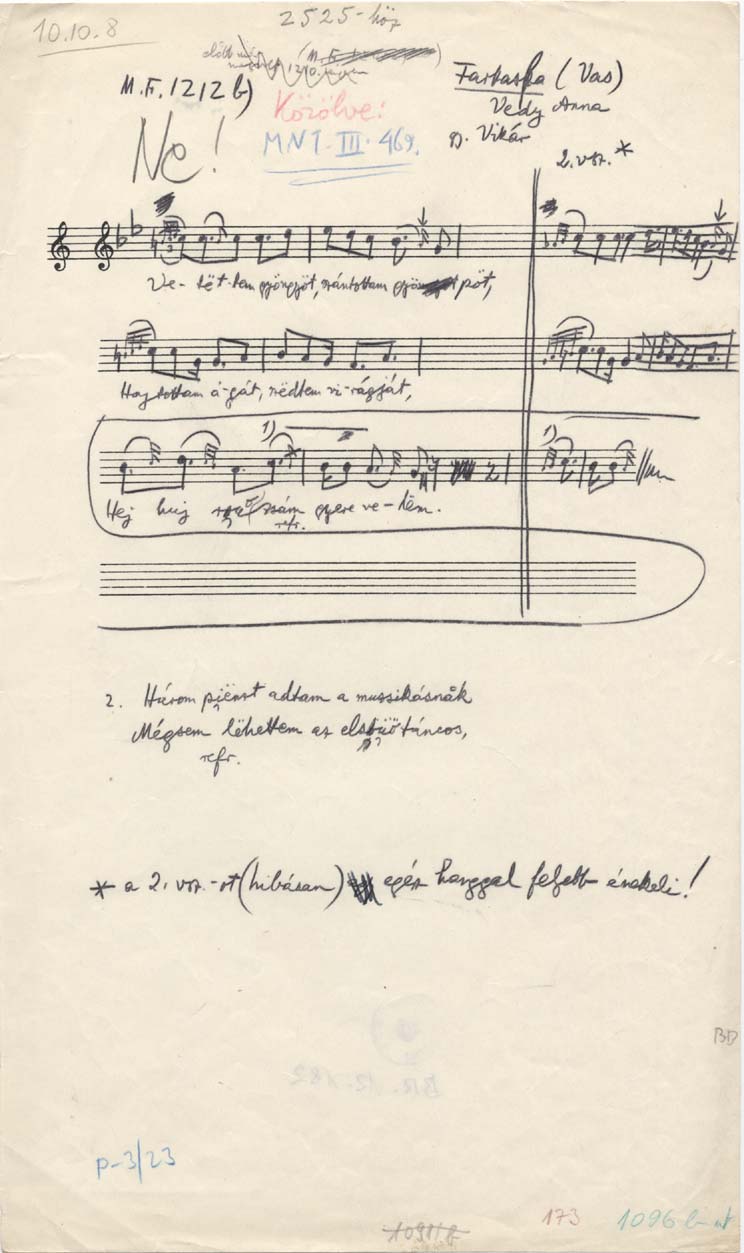 10.10.8
2525-höz
előbb
M.F. 1212 b)
Ne!
Közölve:
MNT. III. 469.
Farkasfa (Vas)
Vedy Anna
gy. Vikár
2. vsz. *
3
Ve- tët-tem gyöngyöt, szántottam pöt,
Haj tottam á-gát, szëdtem vi-rágját,
1)
1)
Hej huj szám gyere ve-lëm.
refr.
2. Három piënzt adtam a muzsikásnåk
Mégsem lëhettem az első táncos,
refr.
* a 2. vsz.-ot (hibásan) egész hanggal feljebb énekeli!
BR. 12.182
BD
p-3/23
173
1096